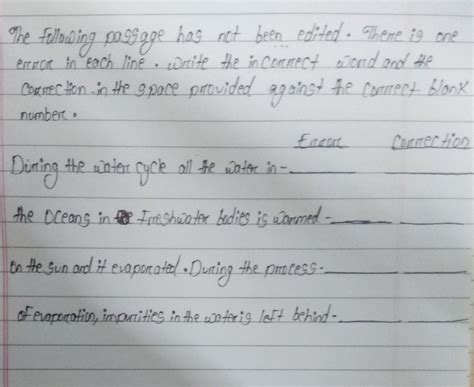 The following passage has not been edited. There is one
error in each line. Write the incorrect word and the
correction in the space provided against the correct blank
number.
Error Correction
During the water cycle all the water in-
the Oceans in Freshwater bodies is warmed-
on the sun and it evaporated. During the process-
of evaporation, impurities in the water is left behind-